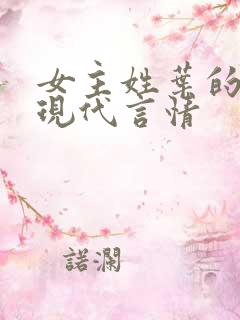 女主姓葉的
現代言情
諾瀾